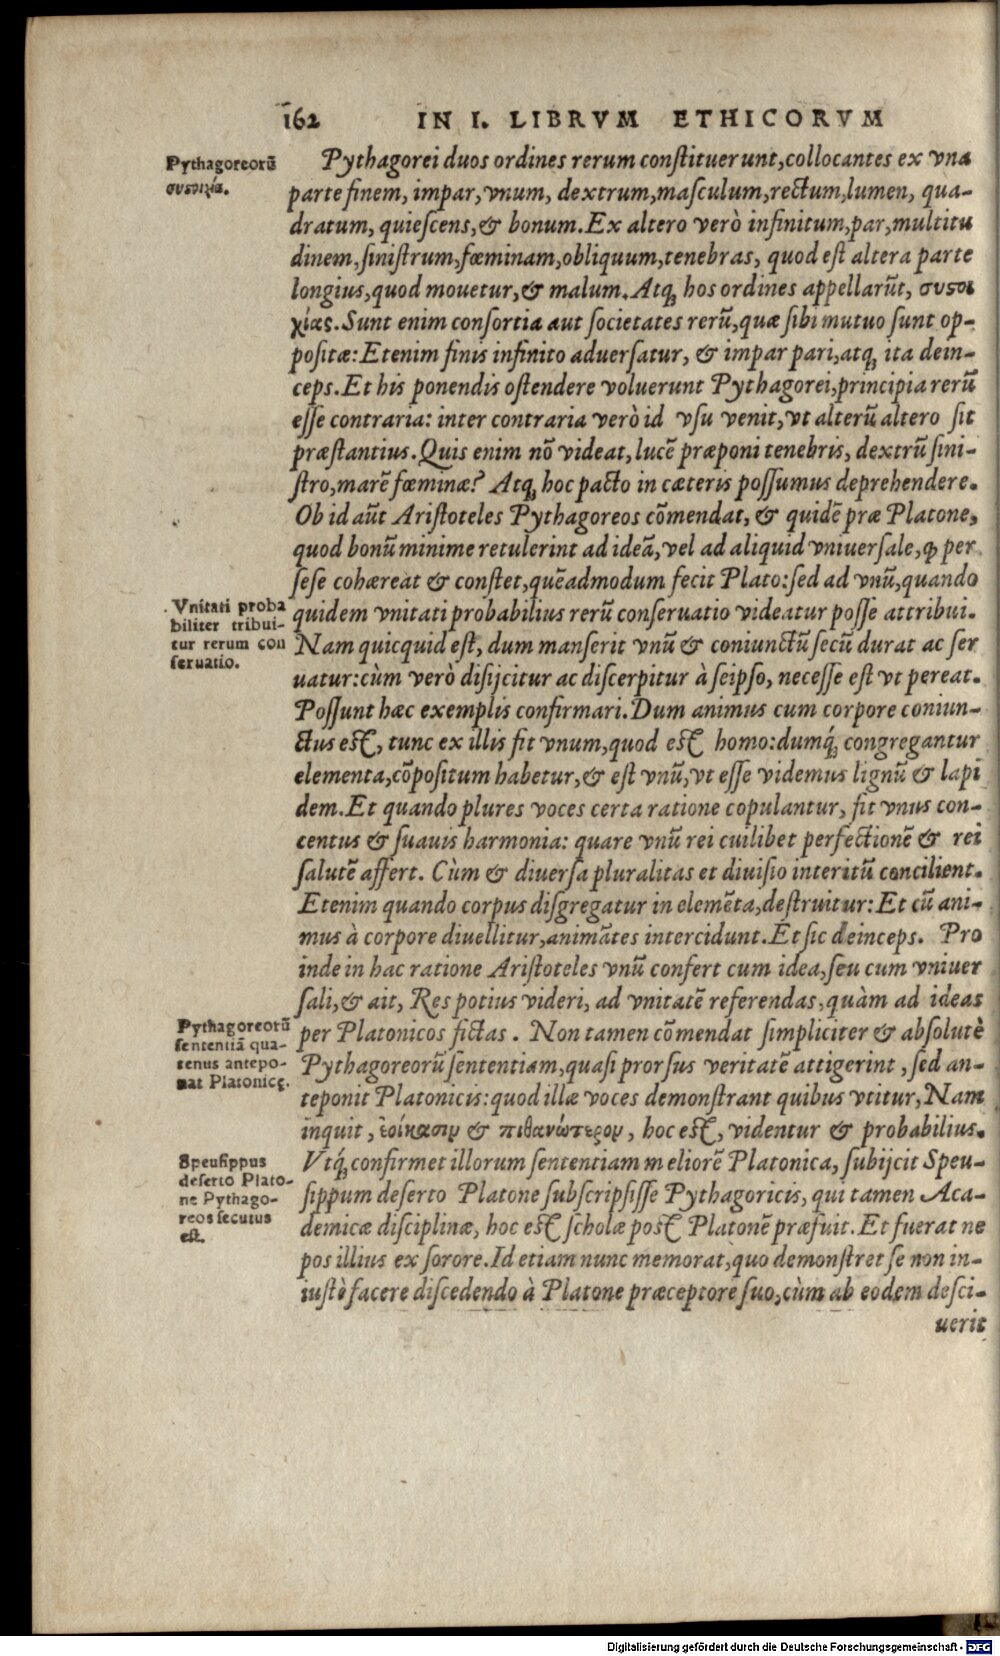 162 IN I. LIBRVM ETHICORVM
Pythagoreorū
συσοιχία.
Pythagorei duos ordines rerum conſtituerunt, collocantes ex vna
parte finem, impar, vnum, dextrum, maſculum, rectum, lumen, qua-
dratum, quieſcens, & bonum. Ex altero verò infinitum, par, multitu
dinem, ſiniſtrum, fœminam, obliquum, tenebras, quod eſt altera parte
longius, quod mouetur, & malum. Atq; hos ordines appellarūt, συσοι
χίας. Sunt enim conſortia aut ſocietates rerū, quæ ſibi mutuo ſunt op-
poſitæ: Etenim finis infinito aduerſatur, & impar pari, atq; ita dein-
ceps. Et his ponendis oſtendere voluerunt Pythagorei, principia rerū
eſſe contraria: inter contraria verò id vſu venit, vt alterū altero ſit
præſtantius. Quis enim nō videat, lucē præponi tenebris, dextrū ſini-
ſtro, marē fœminæ? Atq; hoc pacto in cæteris poſſumus deprehendere.
Ob id aūt Ariſtoteles Pythagoreos cōmendat, & quidē præ Platone,
quod bonū minime retulerint ad ideā, vel ad aliquid vniuerſale, ꝙ per
ſeſe cohæreat & conſtet, quēadmodum fecit Plato: ſed ad vnū, quando
Vnitati proba
biliter tribui-
tur rerum con
ſeruatio.
quidem vnitati probabilius rerū conſeruatio videatur poſſe attribui.
Nam quicquid eſt, dum manſerit vnū & coniunctū ſecū durat ac ſer
uatur: cùm verò diſijcitur ac diſcerpitur à ſeipſo, neceſſe eſt vt pereat.
Poſſunt hæc exemplis confirmari. Dum animus cum corpore coniun-
ctus eſt, tunc ex illis fit vnum, quod eſt homo: dumq́; congregantur
elementa, cōpoſitum habetur, & eſt vnū, vt eſſe videmus lignū & lapi
dem. Et quando plures voces certa ratione copulantur, fit vnus con-
centus & ſuauis harmonia: quare vnū rei cuilibet perfectionē & rei
ſalutē affert. Cùm & diuerſa pluralitas et diuiſio interitū concilient.
Etenim quando corpus diſgregatur in elemēta, deſtruitur: Et cū ani-
mus à corpore diuellitur, animātes intercidunt. Et ſic deinceps. Pro
inde in hac ratione Ariſtoteles vnū confert cum idea, ſeu cum vniuer
ſali, & ait, Res potius videri, ad vnitatē referendas, quàm ad ideas
Pythagoreorū
ſententiā qua-
tenus antepo-
nat Platonicę.
per Platonicos fictas. Non tamen cōmendat ſimpliciter & abſolutè
Pythagoreorū ſententiam, quaſi prorſus veritatē attigerint, ſed an-
teponit Platonicis: quod illæ voces demonſtrant quibus vtitur, Nam
inquit, ἐοίκασιν & πιθανώτερον, hoc eſt, videntur & probabilius.
Speuſippus
deſerto Plato-
ne Pythago-
reos ſecutus
eſt.
Vtq́; confirmet illorum ſententiam meliorē Platonica, ſubijcit Speu-
ſippum deſerto Platone ſubſcripſiſſe Pythagoricis, qui tamen Aca-
demicæ diſciplinæ, hoc eſt ſcholæ poſt Platonē præfuit. Et fuerat ne
pos illius ex ſorore. Id etiam nunc memorat, quo demonſtret ſe non in-
iuſtè facere diſcedendo à Platone præceptore ſuo, cùm ab eodem deſci-
uerit
Digitalisierung gefördert durch die Deutsche Forschungsgemeinschaft - DFG